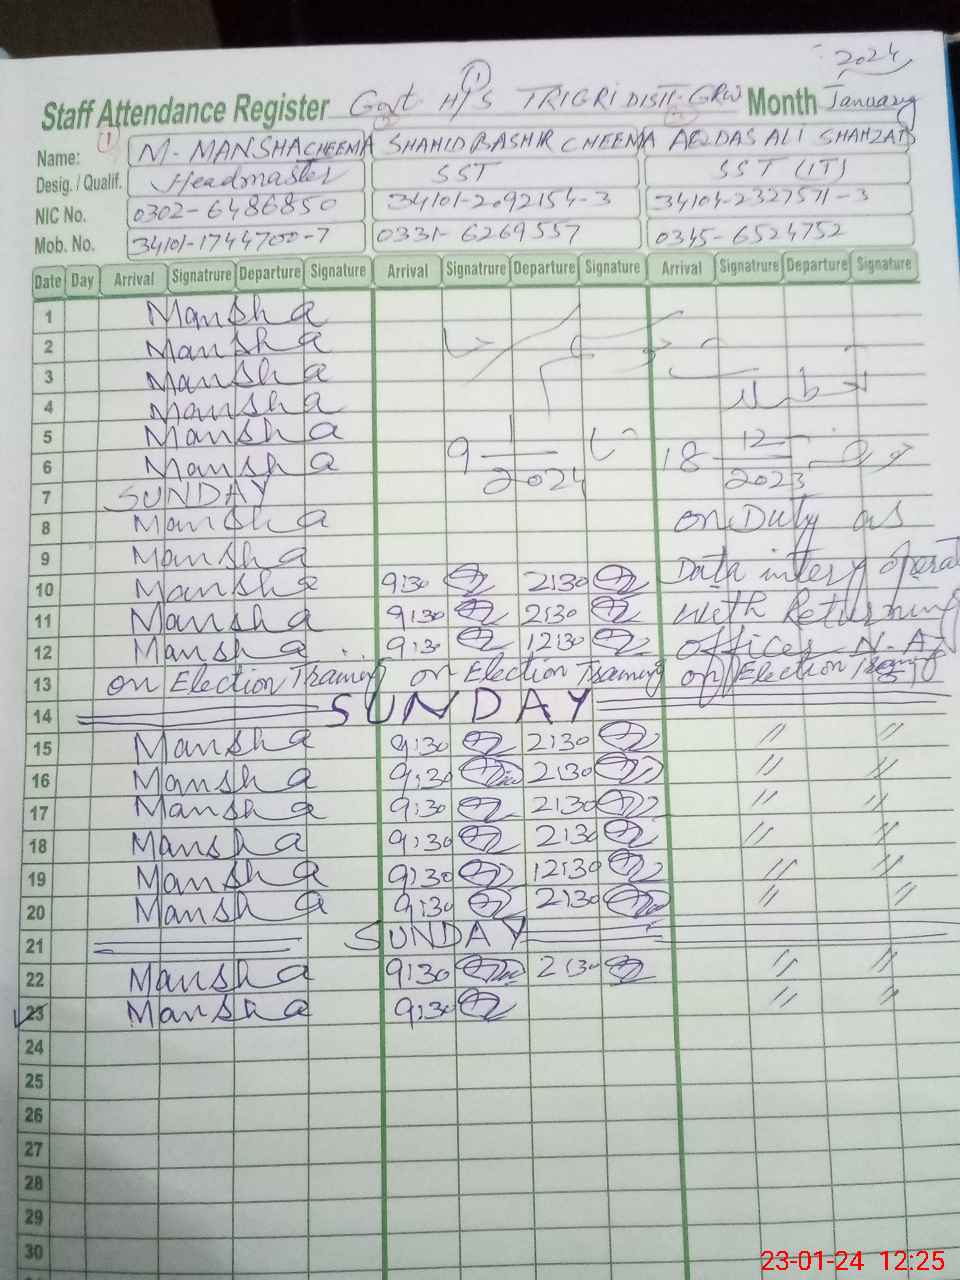 2024
Staff Attendance Register Govt H/S TRIGRI DISTT. GRW Month January
Name: M. MANSHA CHEEMA SHAHID BASHIR CHEEMA ALI SHAHZAD
Desig. / Qualif. Headmaster SST SST (IT)
NIC No. 0302-6486850 34101-2092154-3 34104-2327571-3
Mob. No. 34101-1744700-7 0331-6269557 0345-6524752
Date Day Arrival Signatrure Departure Signature Arrival Signatrure Departure Signature Arrival Signatrure Departure Signature
1 Mansha
2 Mansha
3 Mansha
4 Mansha
5 Mansha
6 Mansha 9 1 2024 18 12 2023
7 SUNDAY
8 Mansha on Duty as
9 Mansha Data intery
10 Mansha 9:30 2:30
11 Mansha 9:30 2:30 with Returning
12 Mansha 9:30 12:30 officer N.A
13 on Election Training on Election Training on Election
14 SUNDAY
15 Mansha 9:30 2:30 // //
16 Mansha 9:30 2:30 // //
17 Mansha 9:30 2:30 // //
18 Mansha 9:30 2:30 // //
19 Mansha 9:30 12:30 // //
20 Mansha 9:30 2:30 // //
21 SUNDAY
22 Mansha 9:30 2:30 // //
23 Mansha 9:30 // //
24
25
26
27
28
29
30
23-01-24 12:25